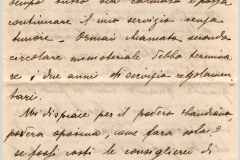 continuare il mio servizio senza
timore. - Ormai chiamata seconda
circolare ministeriale debbo termina
re i due anni di servizio regolamen
tari.
Mi dispiace per il povero
povera sposina, come farà sola e
se possi costì le consigliere di